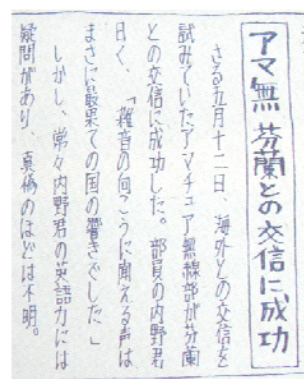 アマ無 芬蘭との交信に成功
さる五月十二日、海外との交信を
試みていたアマチュア無線部が芬蘭
との交信に成功した。部員の内野君
曰く、「雑音の向こうに聞える声は
まさに最果ての国の響きでした」
しかし、常々内野君の英語力には
疑問があり、真偽のほどは不明。